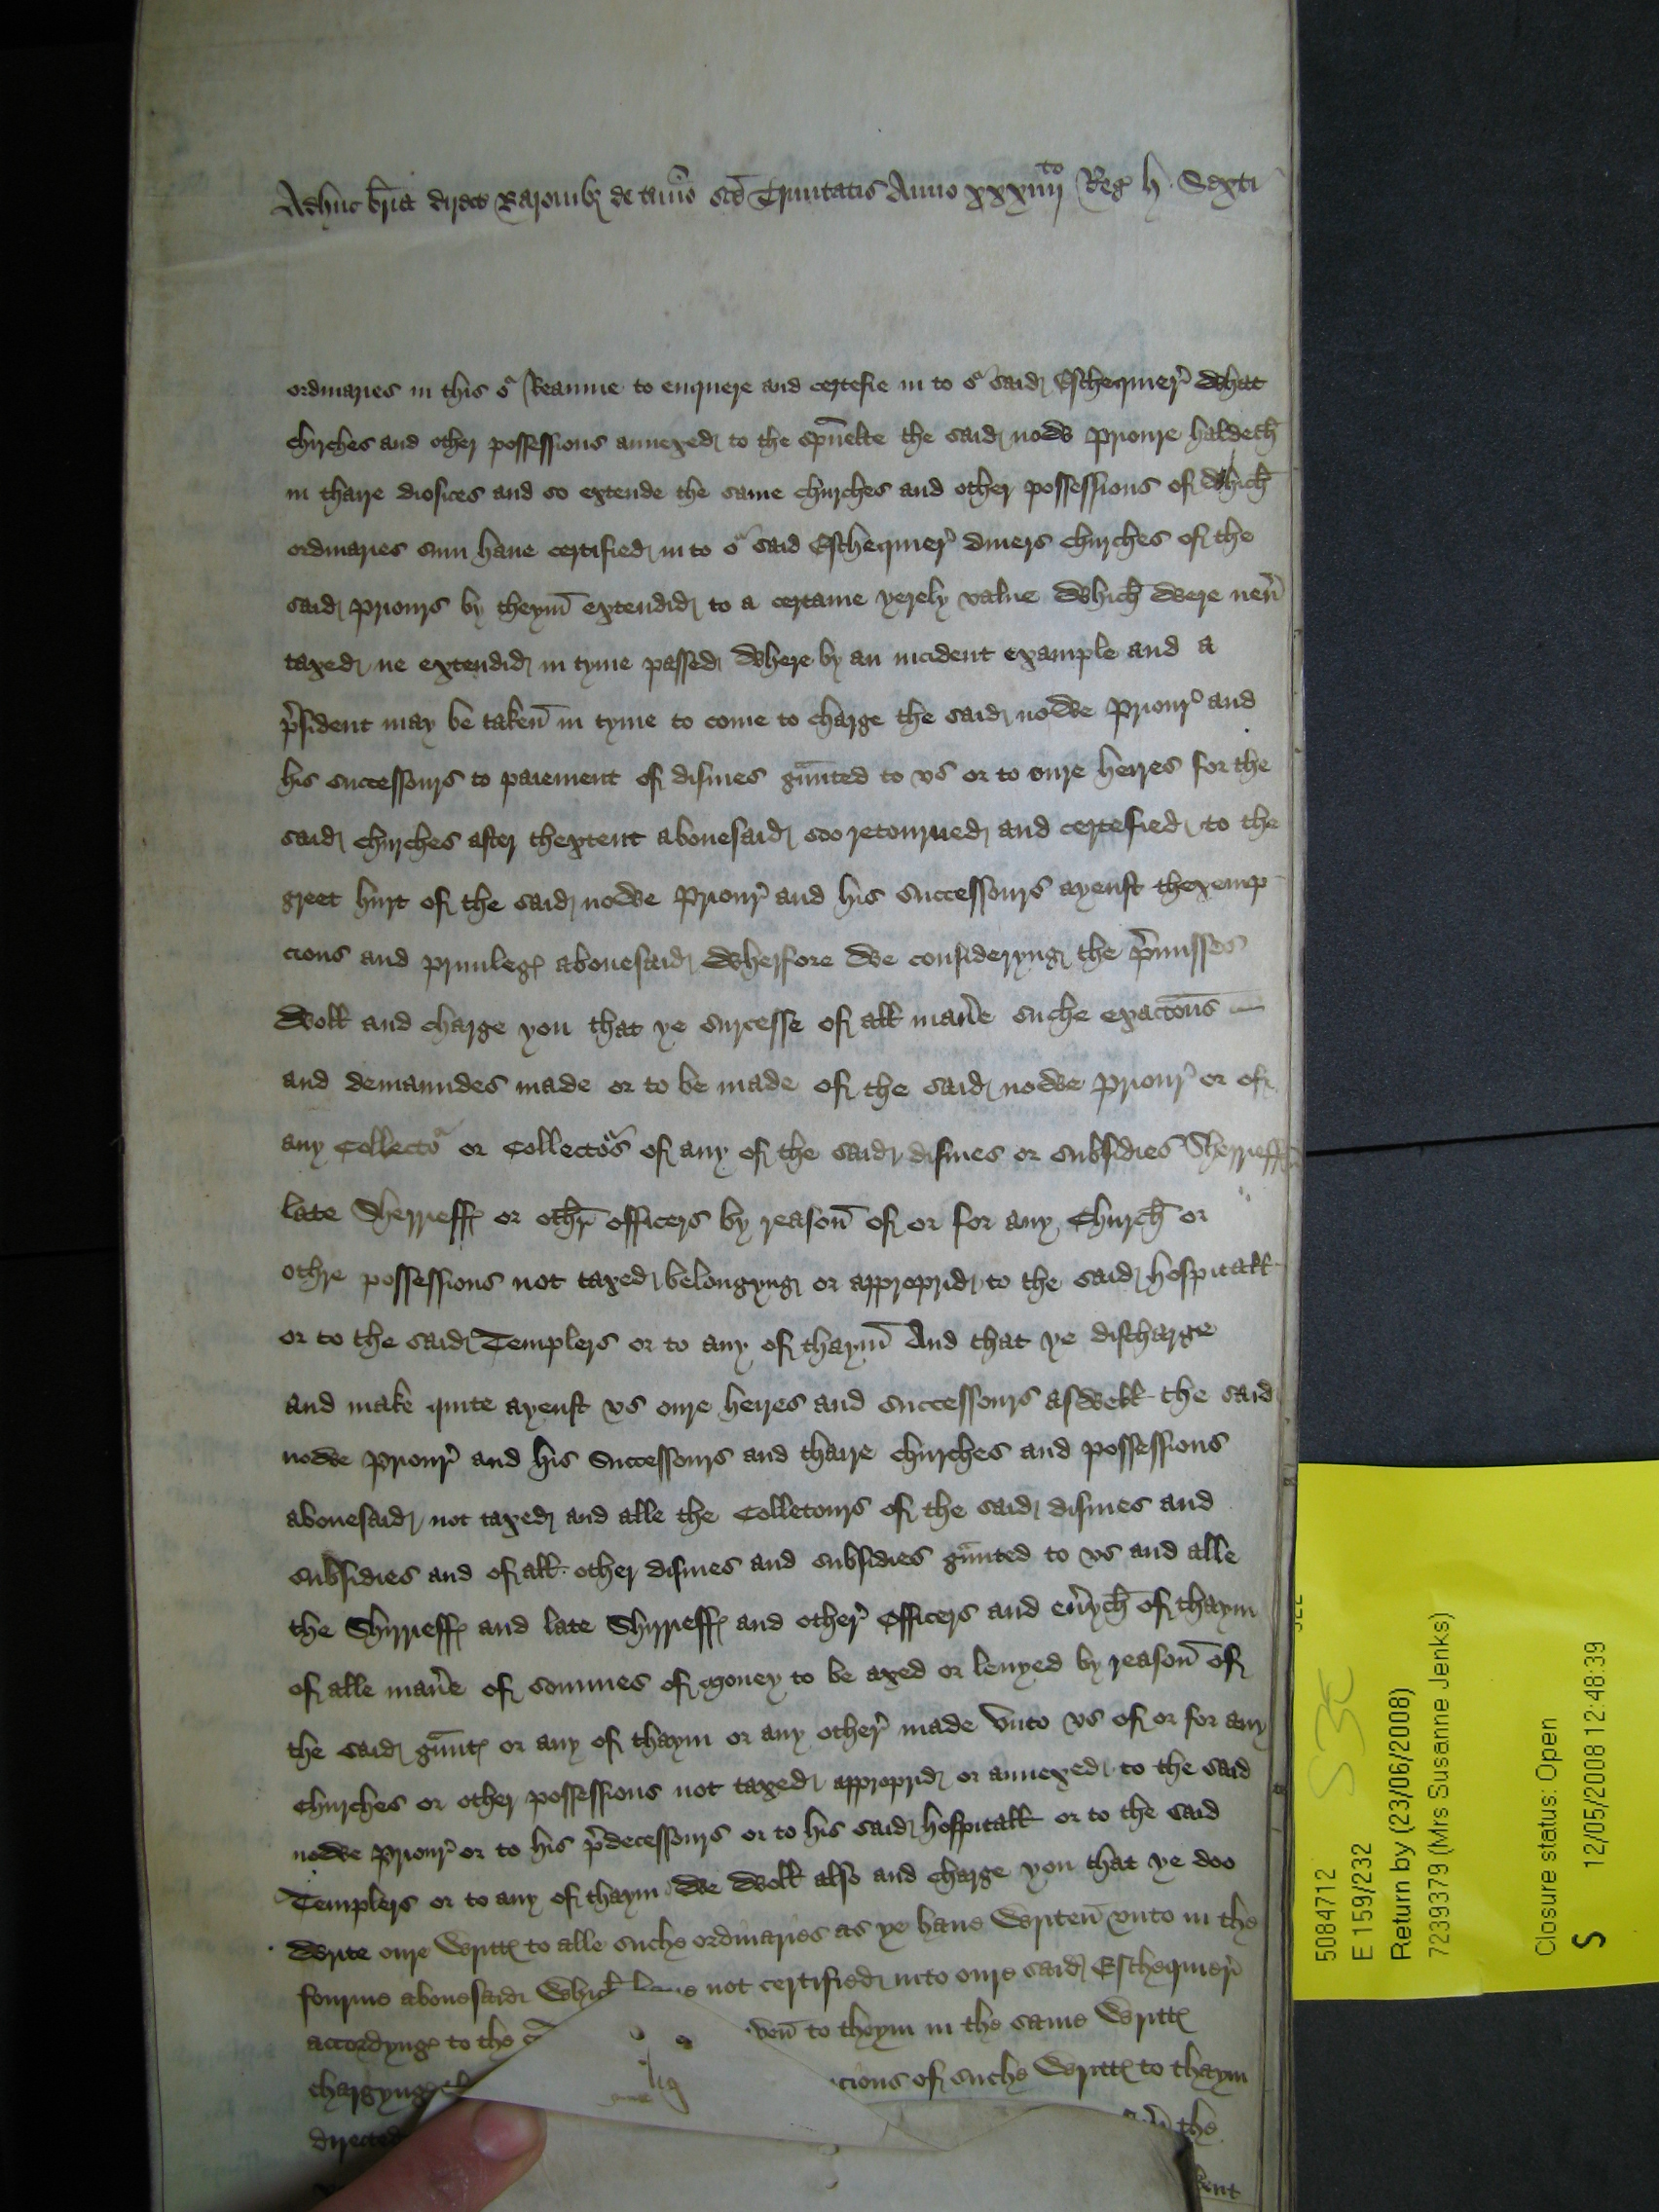 Adhuc br̄ia direct̄ Baronib₃ de t̄mīo sc̄e Trinitatis Anno xxxiiij^to Reg̃ h. Sexti
ordinaries in this oʳ Reaume to enquere and certefie in to oʳ said Eschequier̉ what
chirches and other possessions annexed to the sp̄uelte the said nowe Prioure haldeth̄
in thaire diosices and so extende the same chirches and other possessions of which̄
ordinaries sum haue certified in to oʳ said Eschequier̉ diuers chirches of the
said priours by theym̄ extendid to a certaine yerely value which̄ were neũ
taxed ne extendid in tyme passed where by an incident example and a
p̉sident may be taken̄ in tyme to come to charge the said nowe Priour̉ and
his successours to paiement of dismes gũnted to vs or to oure heires for the
said chirches after thextent abouesaid soo retourned and certefied to the
greet hurt of the said nowe Priour̉ and his successours ayenst thexemp
cions and priuileg̃ abouesaid wherfore we consideryng the p̉misses
woll and charge you that ye surcesse of all man̉e suche exacōns
and demaundes made or to be made of the said nowe priour̉ or of
any Collectoʳ or Collectoʳs of any of the said dismes or subsidies Sherrieff̃
late Sherrieff̃ or oth̄r officers by reason̄ of or for any Church̄ or
othre possessions not taxed belongyng or approprid to the said hospitall
or to the said Templers or to any of thaym̄ And that ye discharge
and make quite ayenst vs oure heires and successours aswell the said
nowe priour̉ and his Successours and thaire chirches and possessions
abouesaid not taxed and alle the Colletours of the said dismes and
subsidies and of all other dismes and subsidies gũnted to vs and alle
the Shirrieff̃ and late Shirrieff̃ and other̉ Officers and eủych̄ of thaym
of alle man̉e of sommes of money to be axed or leuyed by reason̄ of
the said gũnt̃ or any of thaym or any other̉ made vnto vs of or for any
Chirches or other possessions not taxed approprid or annexed to the said
nowe priour̉ or to his p̉decessours or to his said hospitall or to the said
Templers or to any of thaym We woll also and charge you that ye doo
write oure writt̃ to alle suche ordinaries as ye haue writen̄ vnto in the
fourme abouesaid which haue not certified into oure said Eschequier̉
accordyng to the uen̄ to theym in the same writt̃
chargyng cions of suche writt̃ to thaym
directed the
5084712
E 159/232
Return by (23/06/2008)
7239379 (Mrs Susanne Jenks)
Closure status: Open
S 12/05/2008 12:48:39